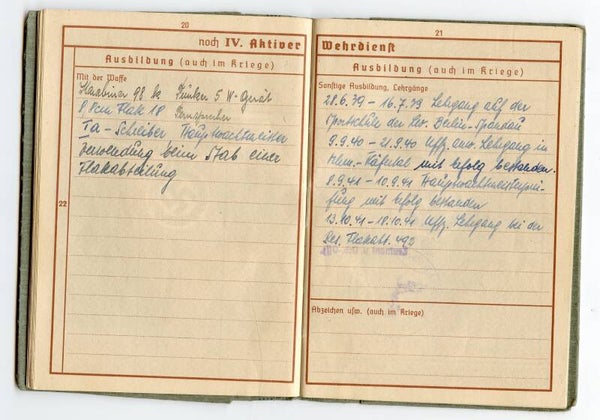 20
noch IV. Aktiver
Ausbildung (auch im Kriege)
Mit der Waffe
Karabiner 98 k Funker 5 W-Gerät
8,8cm Flak 18 Fernsprecher
Ia-Schreiber Hauptwachtmeister
Verwendung beim Stab einer
Flakabteilung
22
21
Wehrdienst
Ausbildung (auch im Kriege)
Sonstige Ausbildung, Lehrgänge
28.6.39 - 16.7.39 Lehrgang auf der
Sportschule der Lw. Berlin-Spandau
9.9.40 - 21.9.40 Uffz. anw. Lehrgang in
Mhm.-Käfertal mit Erfolg bestanden.
8.9.41 - 10.9.41 Hauptwachtmeisterprü-
fung mit Erfolg bestanden
13.10.41 - 18.10.41 Uffz. Lehrgang bei der
Res. Flakabt. 490
Abzeichen usw. (auch im Kriege)